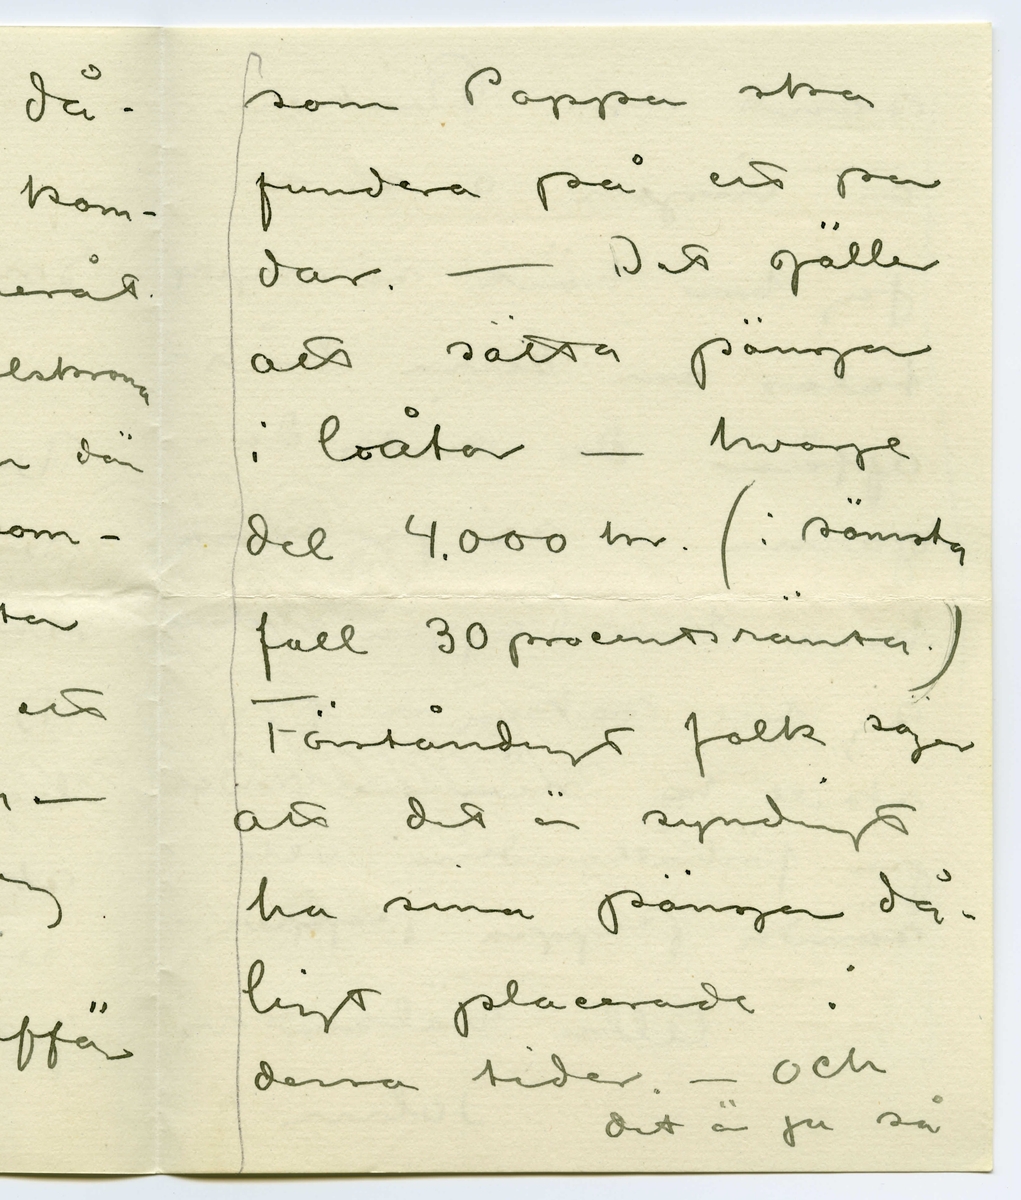 då-
kom-
eråt.
lskrona
där
om-
tar
ett
—
affär
som Pappa ska
fundera på ett par
dar. — Det gäller
att sätta pängar
i båtar — hvarje
del 4.000 kr. (i sämsta
fall 30 procentsränta.)
— Förståndigt folk säger
att det är syndigt
ha sina pängar då-
ligt placerade i
dessa tider. — och
det är ju så